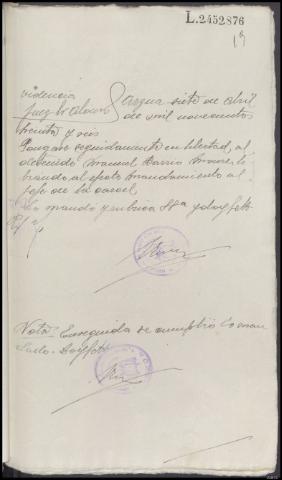 L.2452876
19
videncia
Juez Sr.
siete de abril
de mil novecientos
treinta y seis
Pongase seguidamente en libertad, al
detenido Manuel
brando al efecto mandamiento al
jefe de la carcel
Lo mando y rubrica Sª y doy fe
Nota Enseguida de cumplio lo man
dado. Doy fe